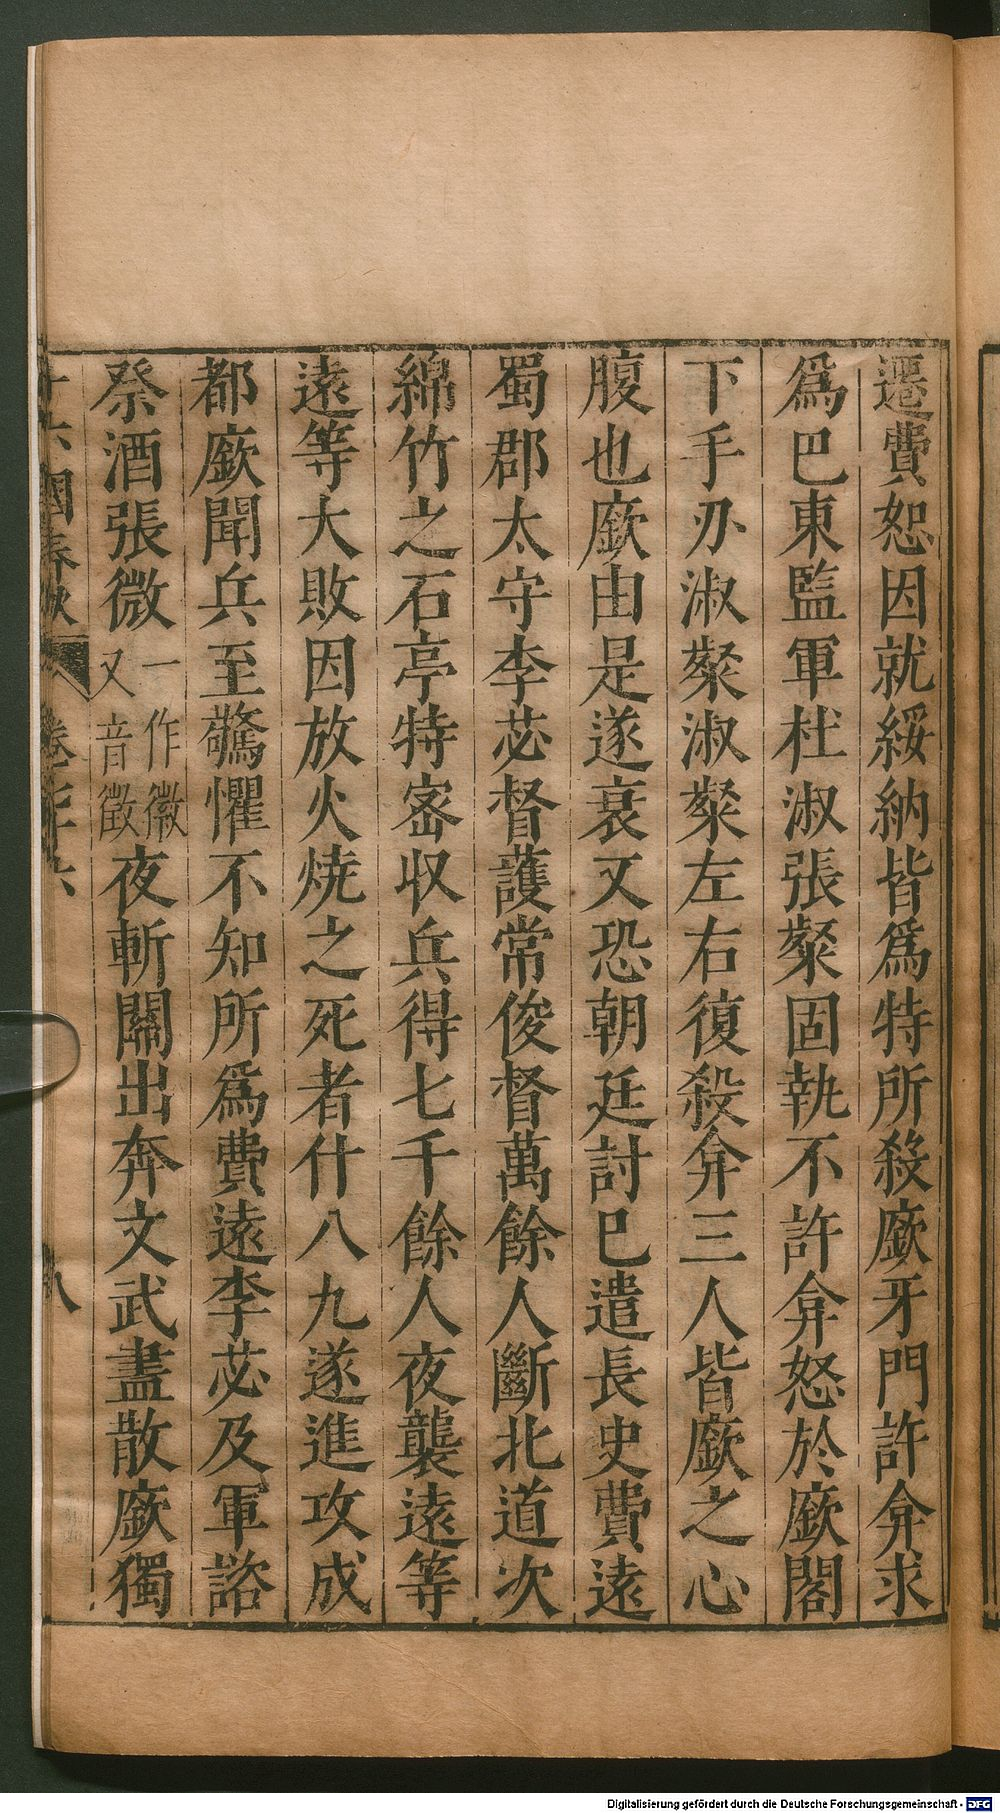 遷費恕因就綏納皆爲特所殺廞牙門許弇求
爲巴東監軍杜淑張粲固執不許弇怒於廞閣
下手刃淑粲淑粲左右復殺弇三人皆廞之心
腹也廞由是遂衰又恐朝廷討巳遣長史費遠
蜀郡太守李苾督護常俊督萬餘人斷北道次
綿竹之石亭特宻収兵得七千餘人夜襲遠等
遠等大敗因放火焼之死者什八九遂進攻成
都廞聞兵至驚懼不知所爲費遠李苾及軍諮
祭酒張微一作徽又音徵夜斬關出奔文武盡散廞獨
十六國春秋 卷七十六 八
Digitalisierung gefördert durch die Deutsche Forschungsgemeinschaft - DFG